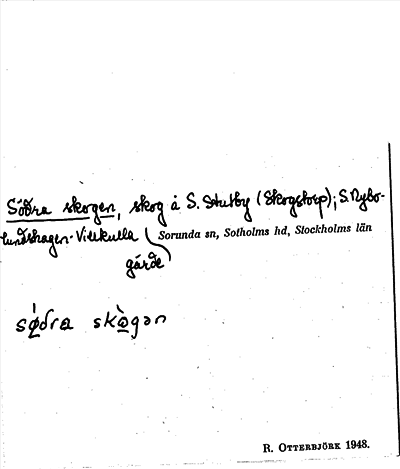 Södra skogen, skog å S. Stutby (Skogstorp); S. Nybo-
lundshagen-Villkulla
Sorunda sn, Sotholms hd, Stockholms län
gärde
sǿdra skògən
R. OTTERBJÖRK 1948.